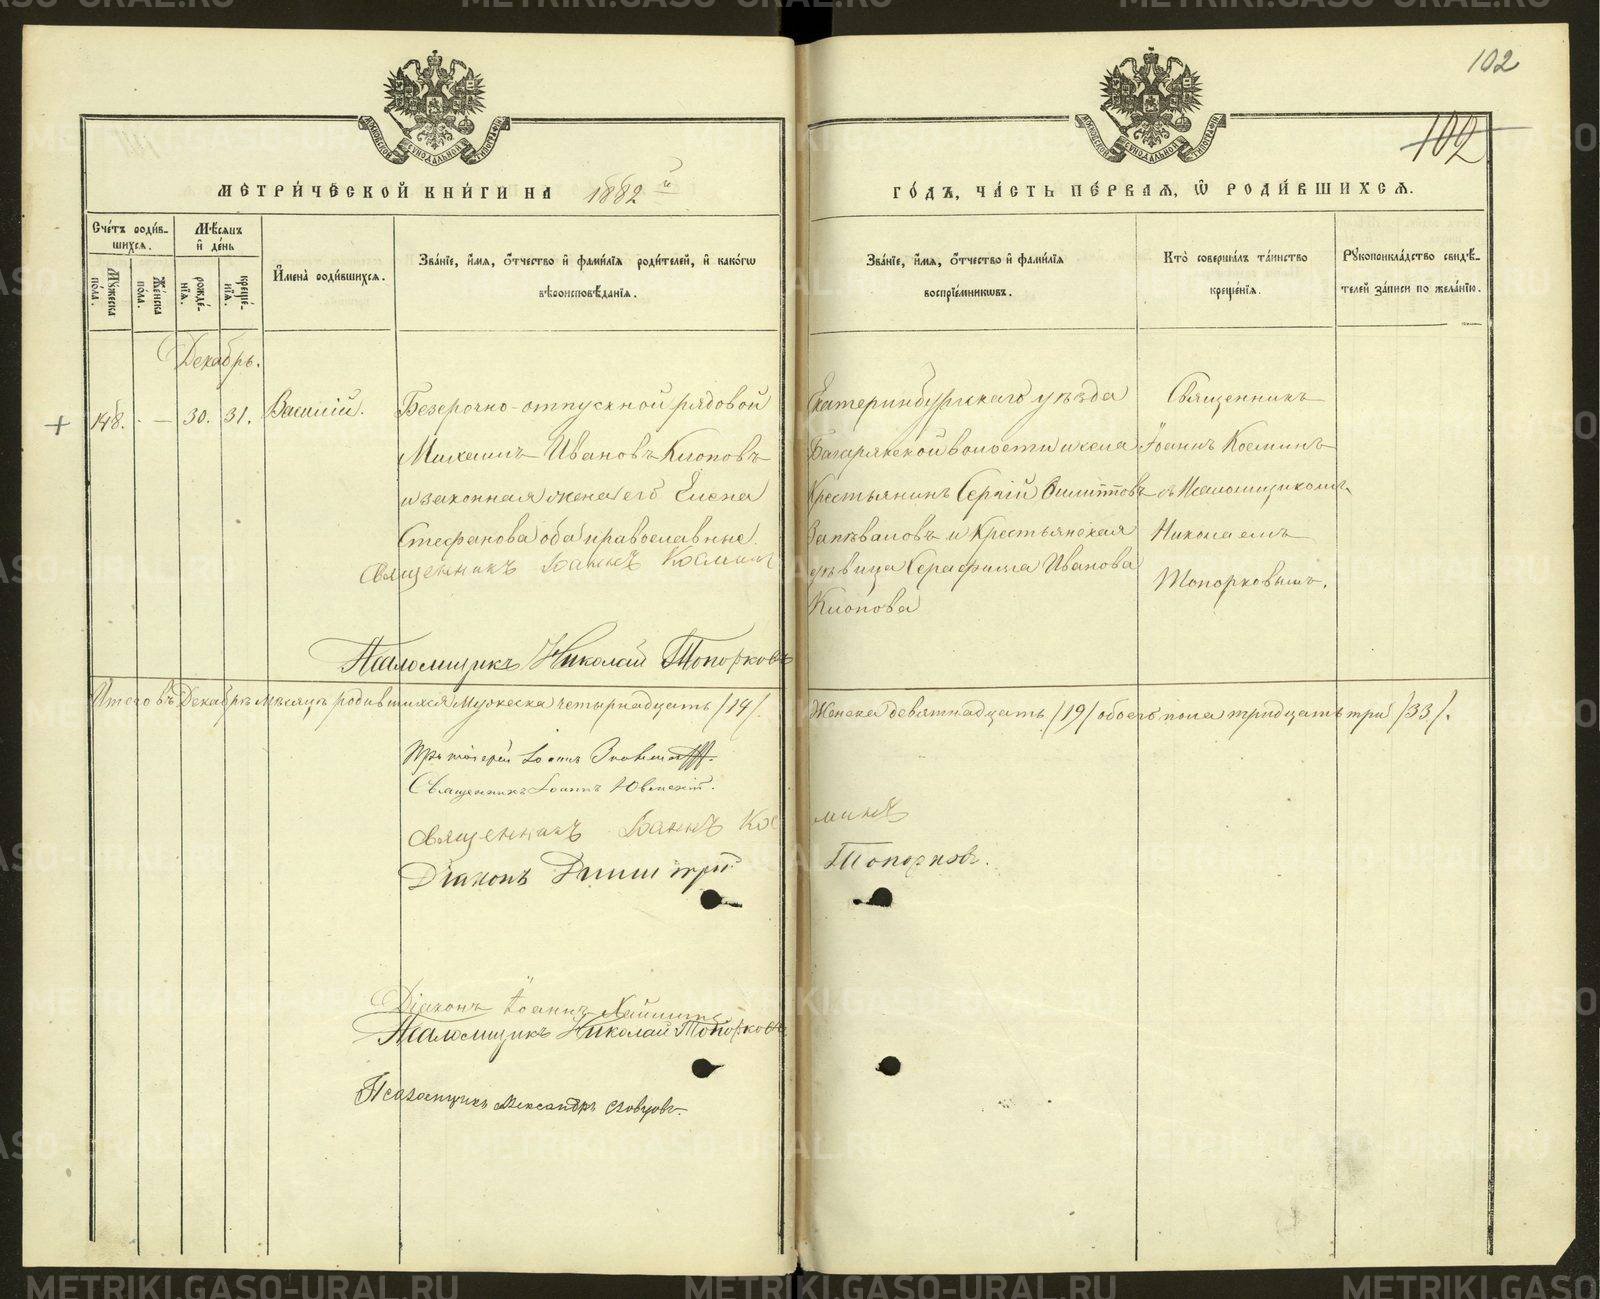 102
102
МЕТРИ́ЧЕСКОЙ КНИ́ГИ НА 1882й
ГО́ДЪ, ЧА́СТЬ ПЕ́РВАЯ, Ѡ РОДИ́ВШИХСЯ.
Сче́тъ роди́в-
шихся.
Му́жеска по́ла.
Же́нска по́ла.
Мѣ́сяцъ и́ де́нь
рожде́-
нїя.
креще́-
нїя.
И́мена̀ роди́вшихся.
Зва́нїе, и́мя, о́тчество и́ фами́лїя роди́телей, и́ како́гѡ
вѣроисповѣ́данїя.
Зва́нїе, и́мя, о́тчество и́ фами́лїя
воспрїе́мникѡвъ.
Кто̀ соверша́лъ та́инство
креще́нїя.
Рꙋкоприкла́дство свидѣ́-
телей за́писи по жела́нїю.
Декабрь.
148. - — 30. 31. Василій.
Безсрочно-отпускной рядовой
Михаилъ Ивановъ Клоповъ
и законная жена его Елена
Стефанова оба православные.
Священникъ Іоаннъ Косминъ
Псаломщикъ Николай Топорковъ
Екатеринбургскаго уѣзда
Багарякской волости и села
Крестьянинъ Сергій Филипповъ
Запѣваловъ и Крестьянская
дѣвица Серафима Иванова
Клопова
Священникъ
Іоаннъ Косминъ
съ Псаломщикомъ
Николаемъ
Топорковымъ.
Итого въ Декабрѣ мѣсяцѣ родившихся мужеска четырнадцать /14/.
Женска девятнадцать /19/ обоего пола тридцать три /33/.
Протоіерей Іоаннъ
Священникъ Іоаннъ
Священникъ Іоаннъ Косминъ
Діаконъ Димитрій Топорковъ.
Діаконъ Іоаннъ
Псаломщикъ Николай Топорковъ
Псаломщикъ Александръ Словцовъ.
METRIKI.GASO-URAL.RU